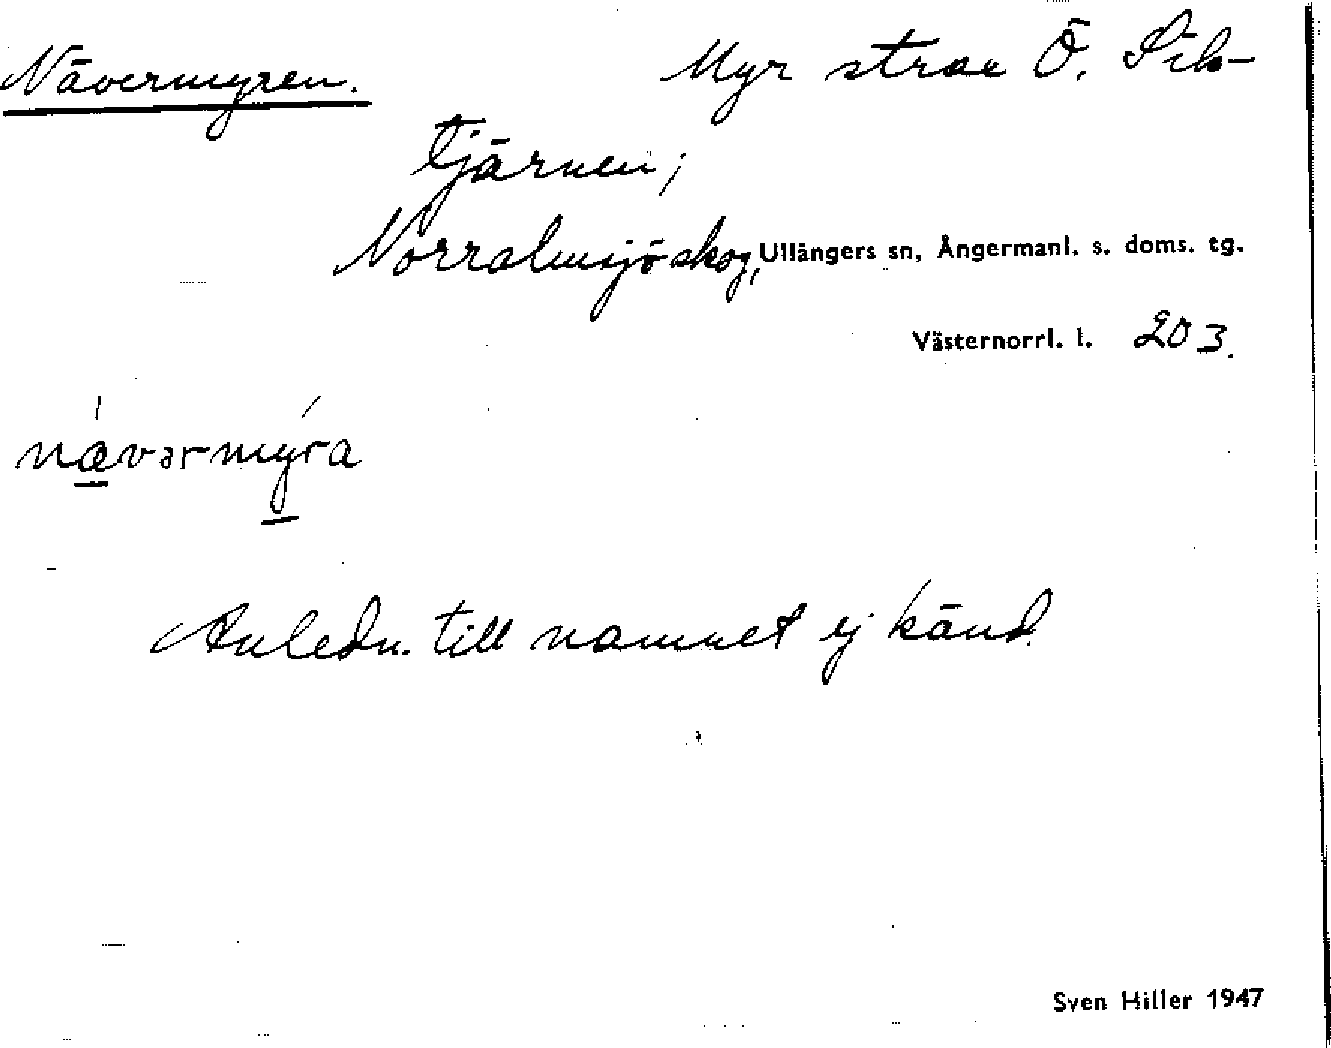 Nävermyren. Myr strax Ö. Sik-
tjärnen;
Norralmsjöskog, Ullångers sn, Ångermanl. s. doms. tg.
Västernorrl. l. 203.
nævərmyra
Anledn. till namnet ej känd.
Sven Hiller 1947